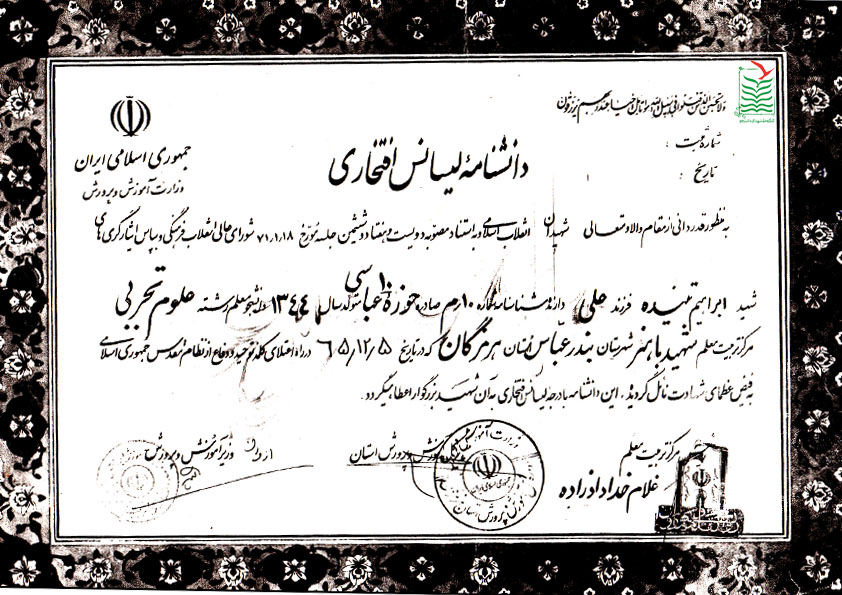 ولا تحسبن الذین قتلوا فی سبیل الله امواتا بل احیاء عند ربهم یرزقون
شماره ثبت :
تاریخ :
جمهوری اسلامی ایران
وزارت آموزش و پرورش
دانشنامهٔ لیسانس افتخاری
به منظور قدردانی از مقام والا و متعالی شهیدان انقلاب اسلامی و به استناد مصوبه دویست و هفتاد و ششمین جلسه مورخ ۷۱,۱,۱۸ شورای عالی انقلاب فرهنگی و بپاس ایثارگری های
شهید ابراهیم فرزند علی دارنده شناسنامه شماره ۱۰ صادره حوزه ۱۰ عباسی متولد سال ۱۳۴۴ دانشجو معلم رشته علوم تجربی
مرکز تربیت معلم شهید باهنر شهرستان بندرعباس استان هرمزگان که در تاریخ ۶۵,۱۲,۵ در راه اعتلای کلمه توحید و دفاع از نظام مقدس جمهوری اسلامی
به فیض عظمای شهادت نائل گردید، این دانشنامه با درجه لیسانس افتخاری به آن شهید بزرگوار اعطا میگردد.
مرکز تربیت معلم
غلام خداداد زاده
آموزش و پرورش استان
وزیر آموزش و پرورش